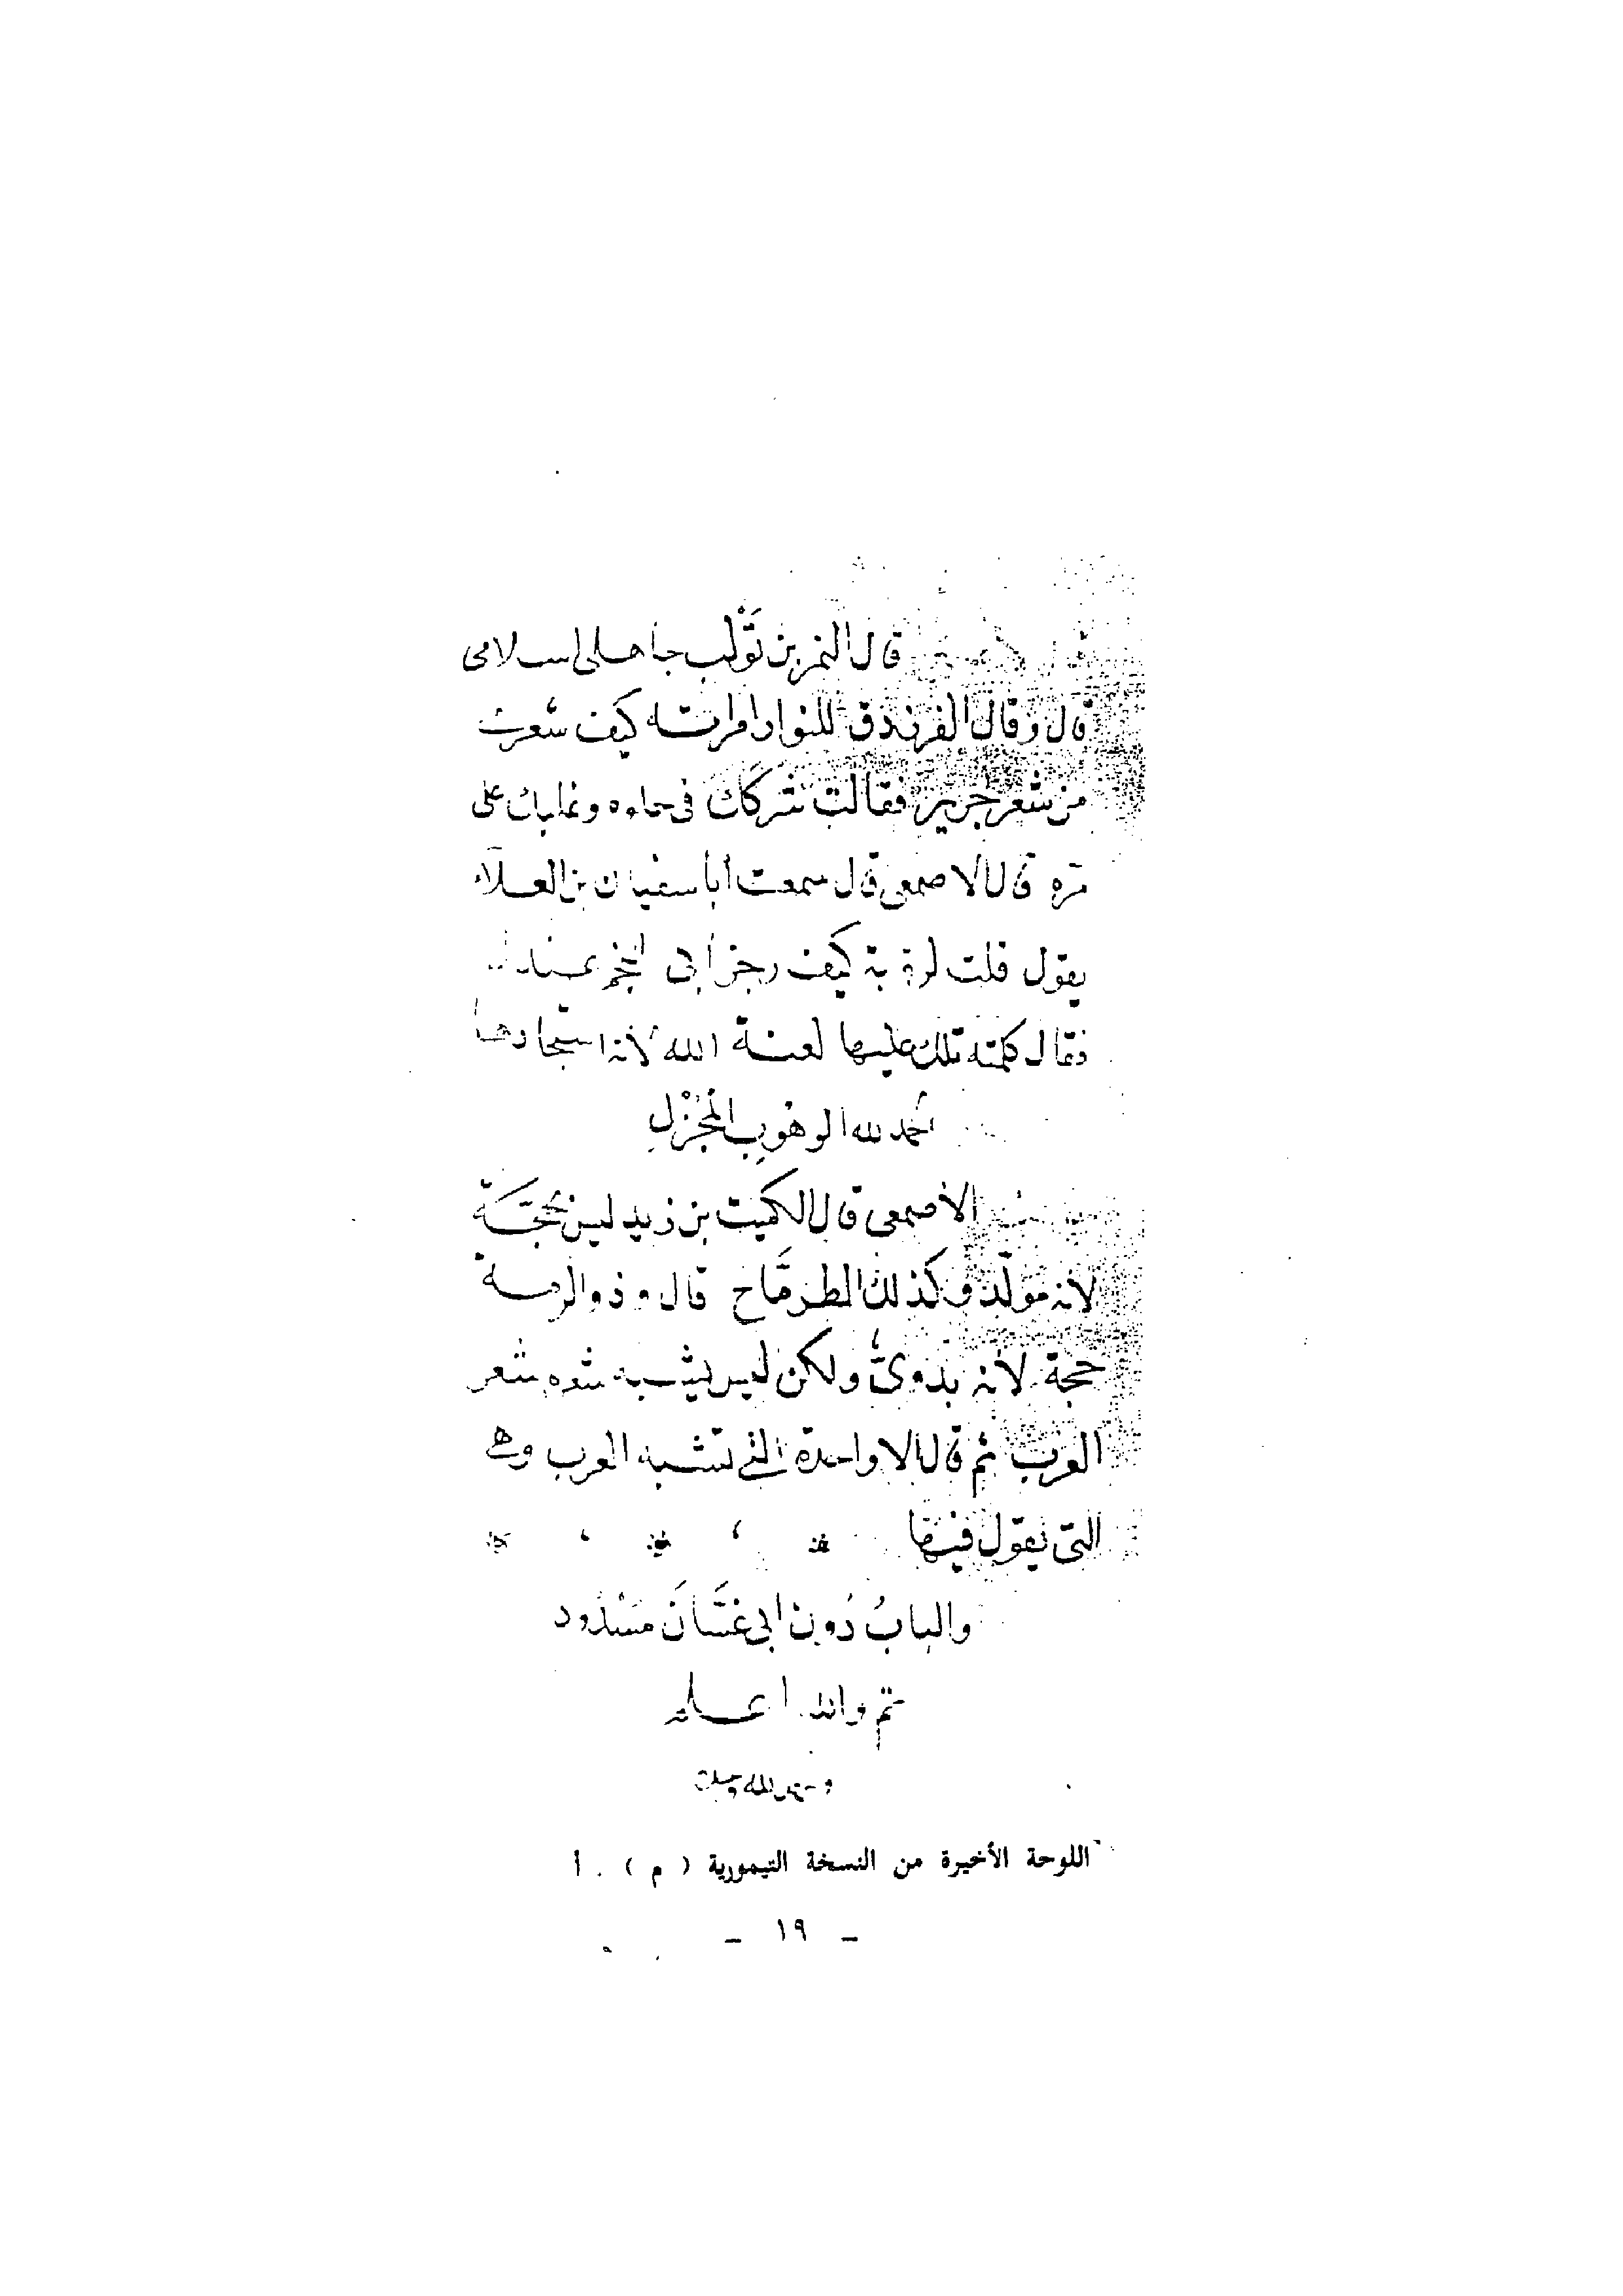 قال النمر بن تَوْلَب جاهلى اسلامى
قال وقال الفرزدق للنوار امراته كيف شعرى
من شعر جرير فقالت شركك فى حلوه وغلبك على
مره قال الاصمعى قال سمعت أبا سفيان بن العلاء
يقول قلت لرؤبة كيف رجز أبى النجم عندك
فقال كلمته تلك عليها لعنة الله لأنه استجادها
الحمد لله الوهُوبِ المُجْزِلِ
الأصمعى قال الكميت بن زيد ليس بحجَّة
لأنه مولّد وكذلك الطرمَّاح قال وذو الرمة
حجة لأنه بدوىٌّ ولكن ليس يشبه شعره شعر
العرب ثم قال الا واحدة التى تشبه العرب وهى
التى يقول فيها
والبابُ دُون ابى غسَّانَ مَسْدُود
تم والله اعلم
اللوحة الأخيرة من النسخة التيمورية ( م ) . أ
ــ ١٩ ــ